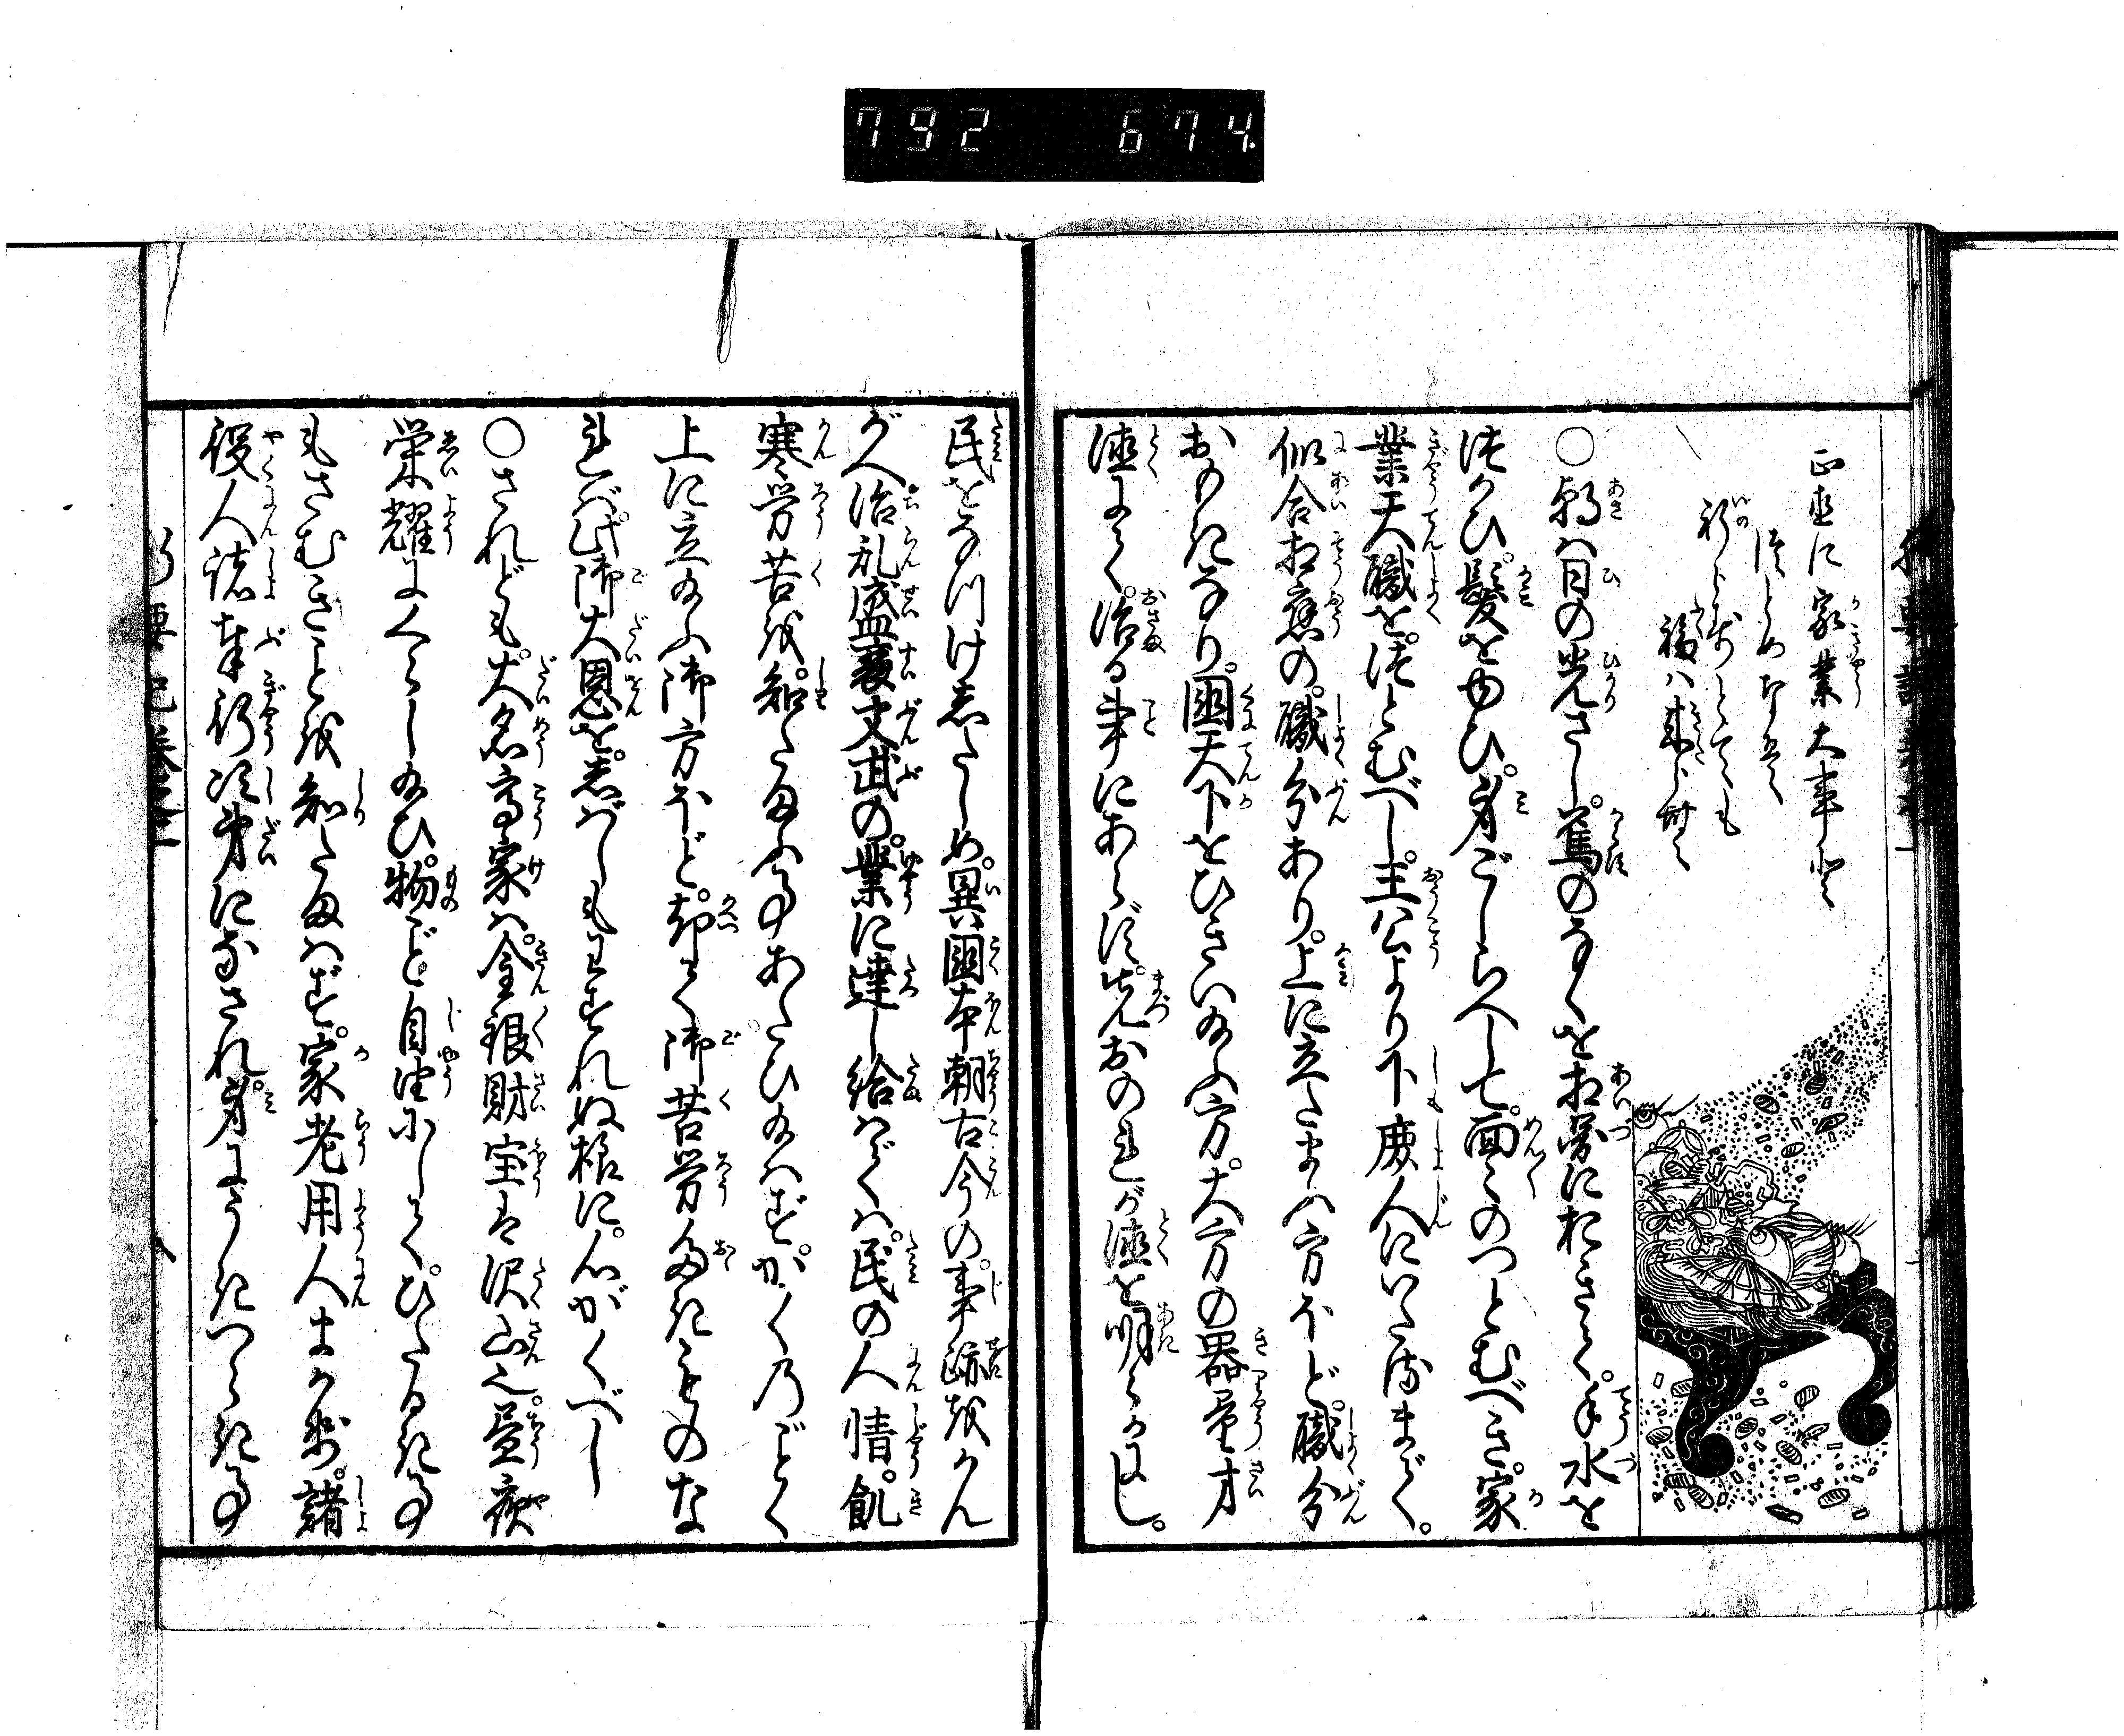 792 674
正直に家業大事と
つとめなば
祈らずとても
福は来らん
○朝は日の光さし鴬のなくを相図におきて。手水を
つかひ。髪をゆひ。身ごしらへして。面々のつとむべき。家
業天職を。つとむべし。王公より下庶人にいたるまで。
似合相應の。職分あり。上に立たまふ方ほど。職分
おもきなり。國天下をひきい給ふ方。大方の器量才
徳にて。治る事にあらず。先おのれが徳を明らかにし。
民をなつけしたしめ。異國本朝古今の。事跡をかん
がへ治乱盛衰文武の。業に達し給はでは。民の人情。飢
寒労苦を。知たまふ事あたひ給はず。かくのごとく
上に立給ふ御方ほど。却て御苦労多きものな
れば。此御大恩を。しばしもわすれぬ様に。心がくべし
○されども。大名高家は。金銀財宝は沢山也。昼夜
栄耀にくらし給ひ。物ごと自由にして。ひだるき事
もさむきことを知たまはず。家老用人まかせ。諸
役人諸奉行次第になされ。身にうきつらき事